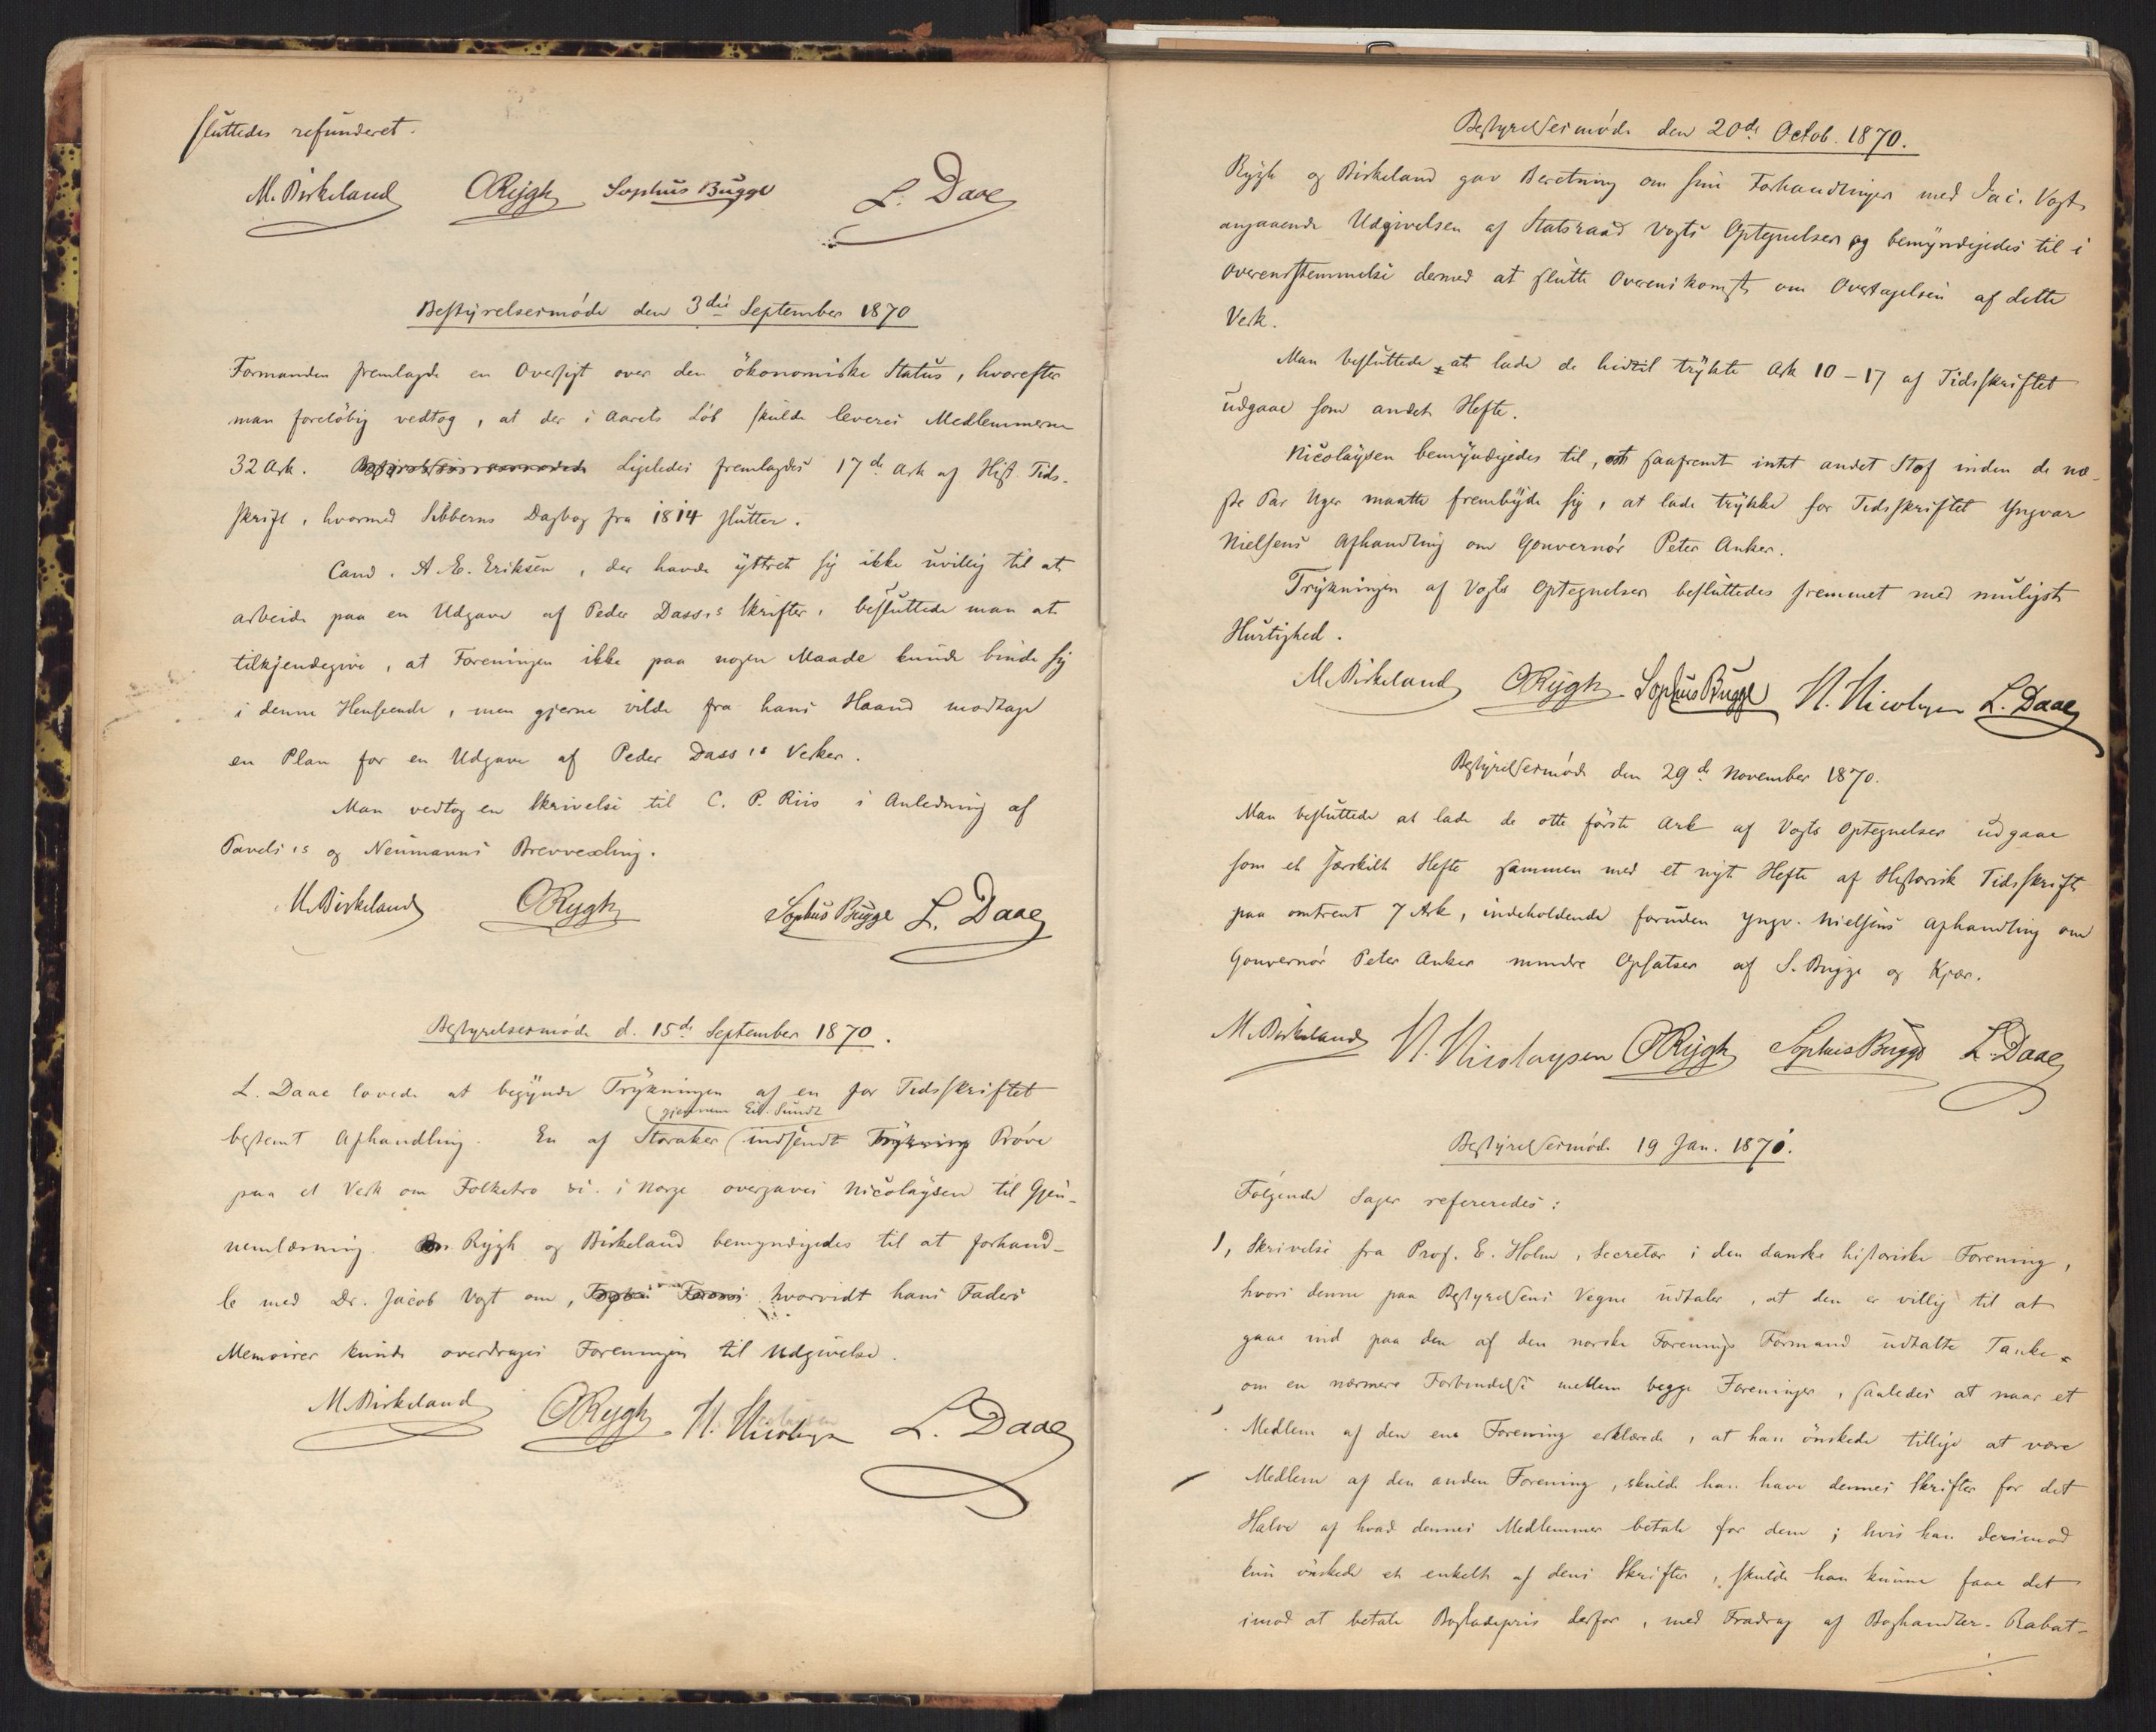 sluttedes refunderet.
M. Birkeland ORygh Sophus Bugge L. Daae
Bestyrelsesmöde den 3die September 1870
Formanden fremlagde en Oversigt over den ökonomiske Status, hvorefter
man forelöbig vedtog, at der i Aarets Löb skulde leveres Medlemmerne
32 Ark. Ligeledes fremlagdes 17de Ark af Hist. Tids-
skrift, hvormed Sibberns Dagbog fra 1814 slutter.
Cand. A. E. Eriksen, der havde yttret sig ikke uvillig til at
arbeide paa en Udgave af Peder Dass's Skrifter, besluttede man at
tilkjendegive, at Foreningen ikke paa nogen Maade kunde binde sig
i denne Henseende, men gjerne vilde fra hans Haand modtage
en Plan for en Udgave af Peder Dass's Verker.
Man vedtog en Skrivelse til C. P. Riis i Anledning af
Pavels's og Neumanns Brevvexling.
M. Birkeland ORygh Sophus Bugge L. Daae
Bestyrelsesmöde d. 15de September 1870.
L. Daae lovede at begynde Trykningen af en for Tidsskriftet
gjennem Eil. Sundt
bestemt Afhandling. En af Storaker indsendt Trykning Pröve
paa et Verk om Folketro i Norge overgaves Nicolaysen til Gjen-
nemlæsning. Rygh og Birkeland bemyndigedes til at forhand-
le med Dr. Jacob Vogt om, hvorvidt hans Faders
Memoirer kunde overdrages Foreningen til Udgivelse.
M. Birkeland ORygh N. Nicolaysen L. Daae
Bestyrelsesmöde den 20de Octob. 1870.
Rygh og Birkeland gav Beretning om sine Forhandlinger med Jac. Vogt
angaaende Udgivelsen af Statsraad Vogts Optegnelser og bemyndigedes til i
Overensstemmelse dermed at slutte Overenskomst om Overtagelsen af dette
Verk.
Man besluttede at lade de hidtil trykte Ark 10-17 af Tidsskriftet
udgaae som andet Hefte.
Nicolaysen bemyndigedes til, saafremt intet andet Stof inden de næ-
ste Par Uger maatte frembyde sig, at lade trykke for Tidsskriftet Yngvar
Nielsens Afhandling om Gouvernör Peter Anker.
Trykningen af Vogts Optegnelser besluttedes fremmet med muligst
Hurtighed.
M. Birkeland ORygh Sophus Bugge N. Nicolaysen L. Daae
Bestyrelsesmöde den 29de November 1870.
Man besluttede at lade de otte förste Ark af Vogts Optegnelser udgaae
som et særskilt Hefte sammen med et nyt Hefte af Historisk Tidsskrift
paa omtrent 7 Ark, indeholdende foruden Yngv. Nielsens Afhandling om
Gouvernör Peter Anker mindre Opsatser af S. Bugge og Kjær.
M. Birkeland N. Nicolaysen ORygh Sophus Bugge L. Daae
Bestyrelsesmöde 19 Jan. 1871.
Fölgende Sager refereredes:
1, Skrivelse fra Prof. E. Holm, Secretær i den danske historiske Forening,
hvori denne paa Bestyrelsens Vegne udtaler, at den er villig til at
gaae ind paa den af den norske Forenings Formand udtalte Tanke
om en nærmere Forbindelse mellem begge Foreninger, saaledes at naar et
Medlem af den ene Forening erklærede, at han önskede tillige at være
Medlem af den anden Forening, skulde han have dennes Skrifter for det
Halve af hvad dennes Medlemmer betale for dem; hvis han derimod
kun önskede et enkelt af dens Skrifter, skulde han kunne faae det
imod at betale Bogladepris derfor, med Fradrag af Boghandler-Rabat-